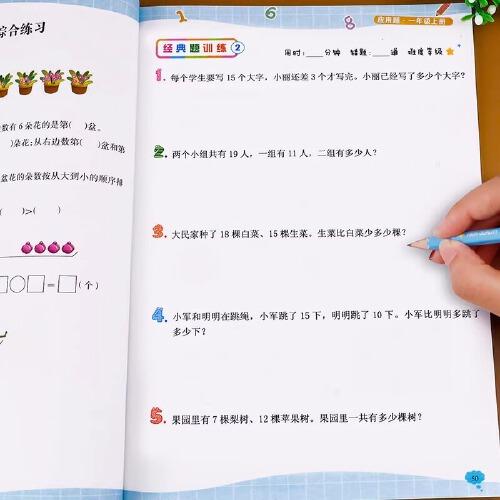 综合练习
数有6朵花的是第( )盆。
( )朵花;从右边数第( )盆和第
盆花的朵数按从大到小的顺序排
( )>( )
(个)
应用题·一年级上册
经典题训练 2
用时:____分钟 错题:____道 难度等级
1. 每个学生要写15个大字,小丽还差3个才写完。小丽已经写了多少个大字?
2. 两个小组共有19人,一组有11人,二组有多少人?
3. 大民家种了18棵白菜、15棵生菜。生菜比白菜少多少棵?
4. 小军和明明在跳绳,小军跳了15下,明明跳了10下。小军比明明多跳了
多少下?
5. 果园里有7棵梨树、12棵苹果树。果园里一共有多少棵树?
50